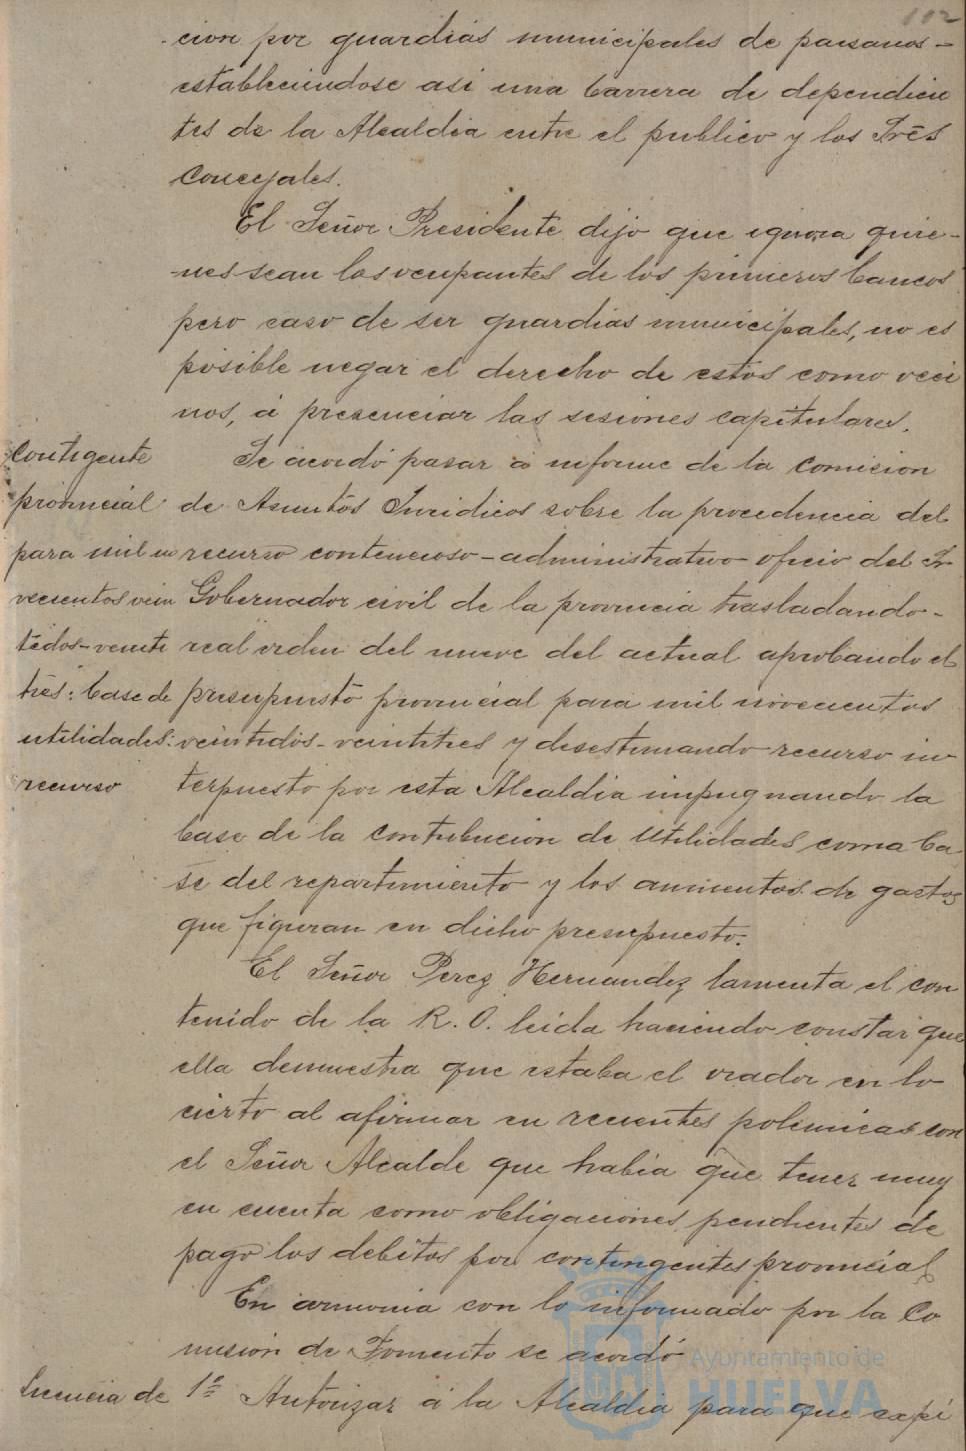 102
cion por guardias municipales de paisanos-
estableciendose asi una barrera de dependien
tes de la Alcaldia entre el publico y los Trēs
Concejales.
El Señor Presidente dijo que ignora quie-
-nes sean los ocupantes de los primeros bancos
pero caso de ser guardias municipales, no es
posible negar el derecho de estos como veci
nos, á presenciar las sesiones capitulares.
Contigente
provincial
para mil no
vecientos vein
tidos-veinti
trēs: base de
utilidades:
recurso
Se acordó pasar a informe de la comision
de Asuntos Juridicos sobre la procedencia del
recurso contencioso-administrativo oficio del Sr
Gobernador civil de la provincia trasladando-
real orden del nueve del actual aprobando el
presupuesto provincial para mil novecientos
veintidos-veintitres y desestimando recurso in
terpuesto por esta Alcaldia impugnando la
base de la contribucion de Utilidades como ba
se del repartimiento y los aumentos de gastos
que figuran en dicho presupuesto.
El Señor Perez Hernandez lamenta el con
tenido de la R. O. leida haciendo constar que
ella demuestra que estaba el orador en lo
cierto al afirmar en recientes polemicas con
el Señor Alcalde que habia que tener muy
en cuenta como obligaciones pendientes de
pago los debitos por contingentes provincial
En armonia con lo informado por la Co
mision de Fomento se acordó
Licencia de
1º Autorizar á la Alcaldia para que expi
Ayuntamiento de
HUELVA